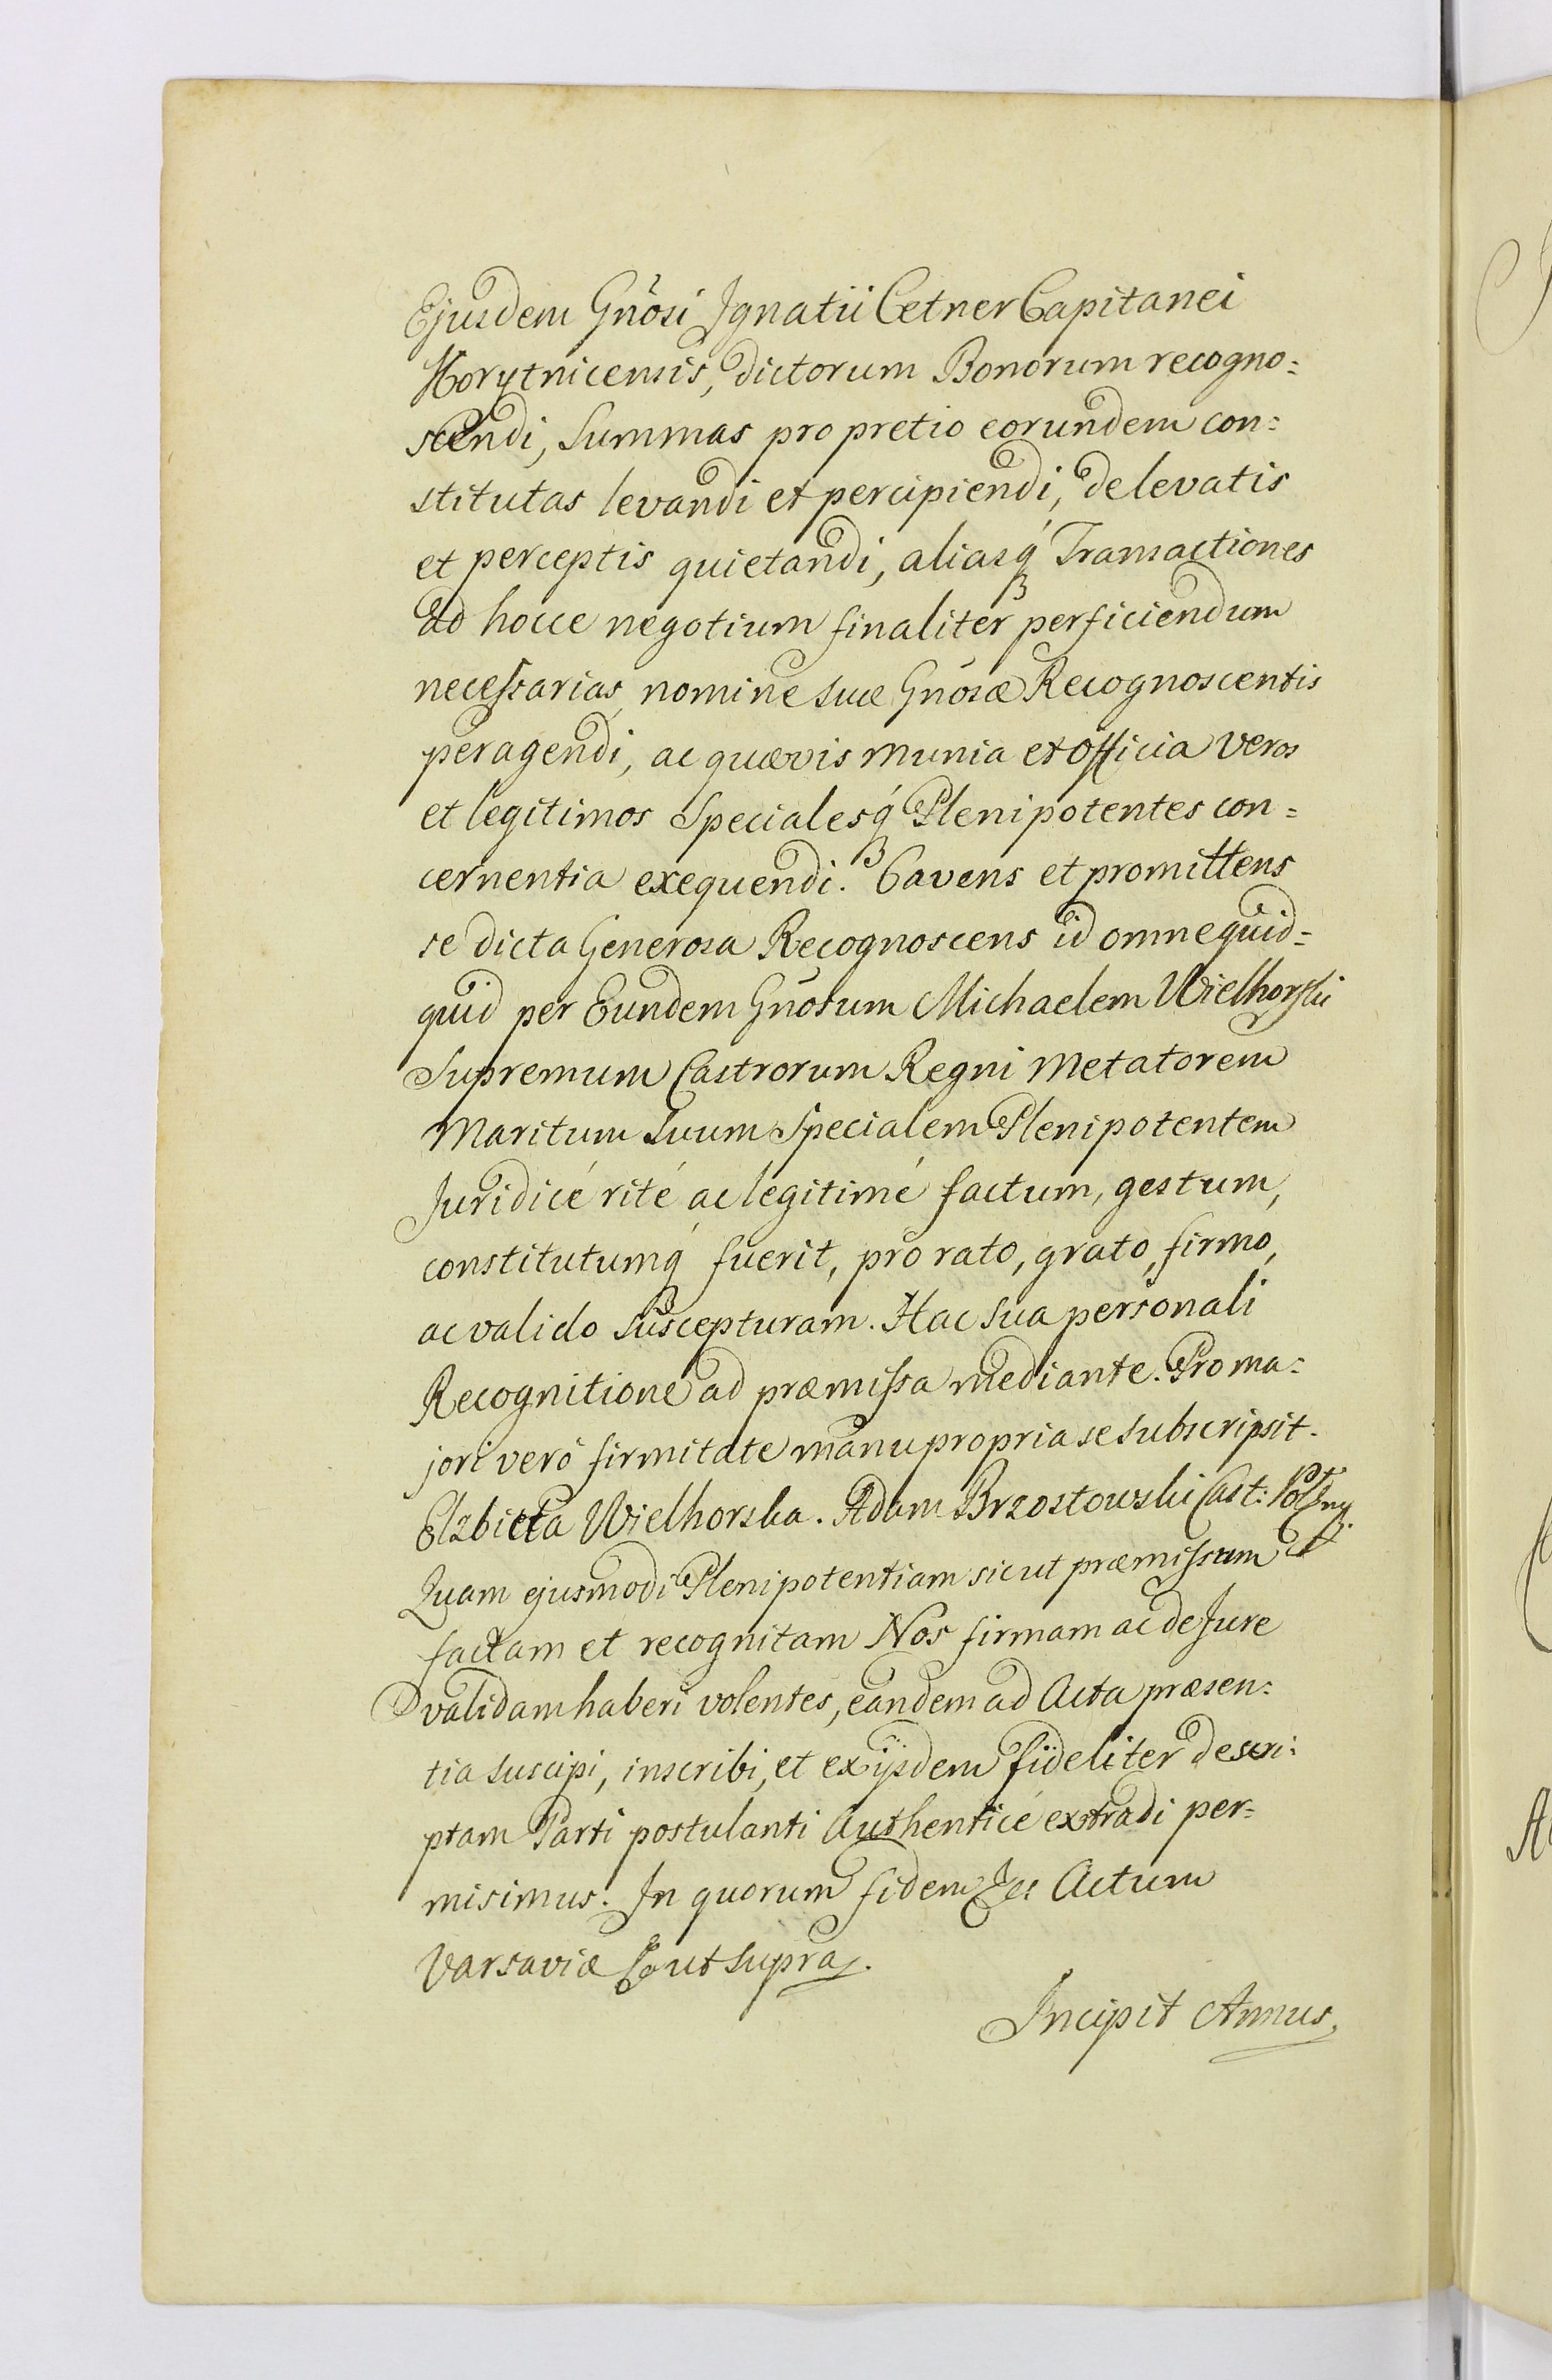 Ejusdem Gnōsi Ignatii Cetner Capitanei
Korytnicensis, dictorum Bonorum recogno=
scendi, Summas pro pretio eorundem con=
stitutas levandi et percipiendi, de levatis
et perceptis quietandi, aliasq́ Transactiones
ad hocce negotium finaliter perficiendum
necessarias, nomine suæ Gnōsæ Recognoscentis
peragendi, ac quævis munia et officia veros
et legitimos Specialesq́ Plenipotentes con=
cernentia exequendi. Cavens et promittens
se dicta Generosa Recognoscens id omne quid=
quid per Eundem Gnōsum Michaelem Wielhorski
Supremum Castrorum Regni Metatorem
Maritum suum Specialem Plenipotentem
Juridicé rité ac legitimé factum, gestum,
constitutumq́ fuerit, pro rato, grato, firmo,
ac valido suscepturam. Hac sua personali
Recognitione ad præmissa mediante. Pro ma=
jori veró firmitate manu propria se subscripsit.
Elzbieta Wielhorska. Adam Brzostowski Cast:
Quam ejusmodi Plenipotentiam sicut præmissum est
factam et recognitam Nos firmam ac de Jure
validam haberi volentes, eandem ad Acta præsen=
tia suscipi, inscribi, et ex ijsdem fideliter descri=
ptam Parti postulanti Authenticé extradi per=
misimus. In quorum fidem Etc Actum
Varsaviæ ut supra.
Incipit Annus,